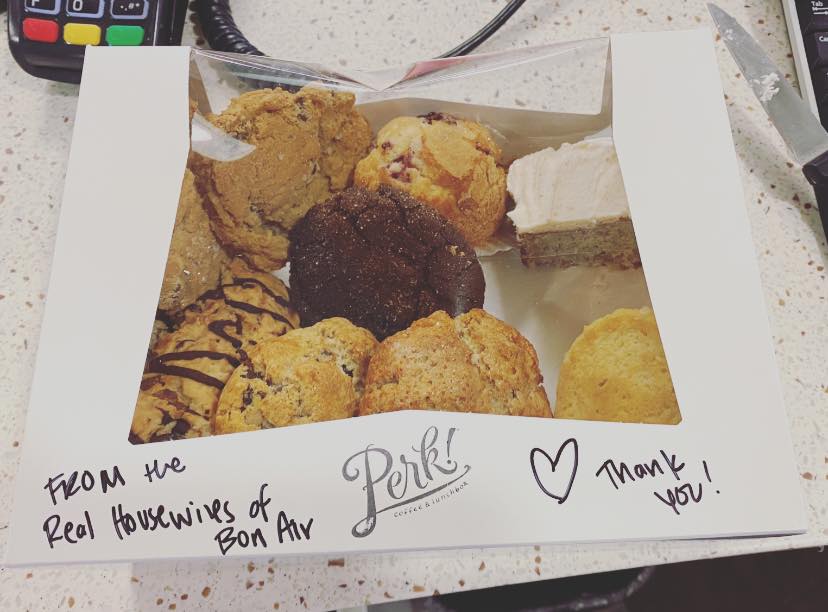 FROM the
Real Housewives of
Bon Air
Perk!
coffee & lunchbox
Thank
you!
Tab